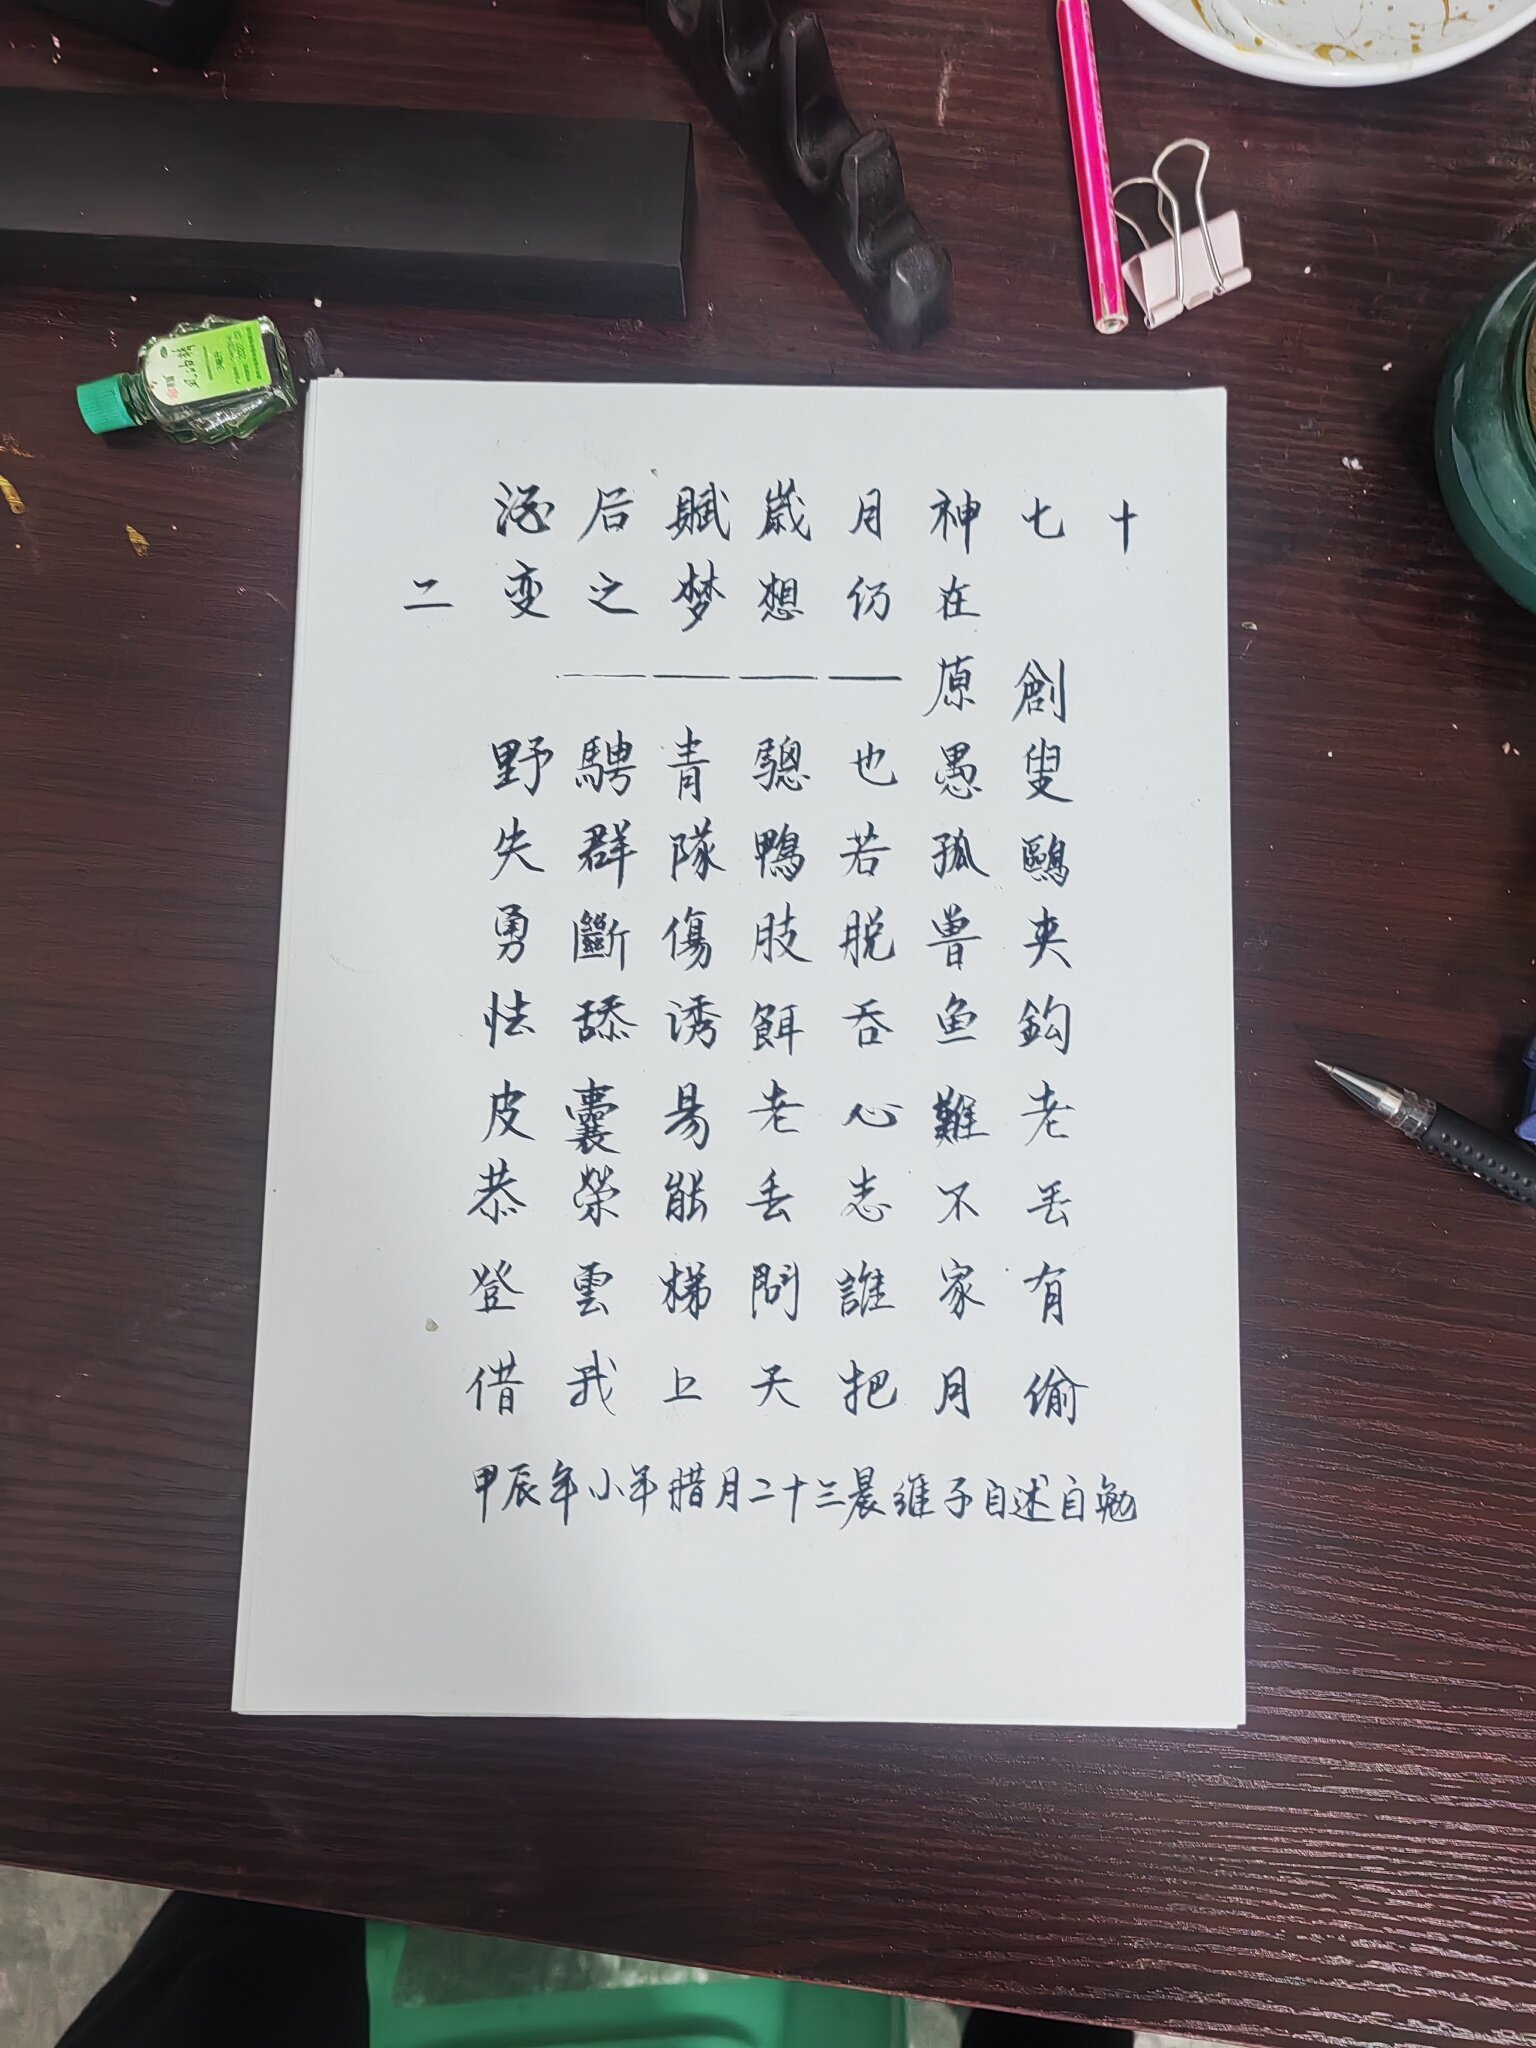 酒后賦歲月神七十
二变之梦想仍在
原創
野騁青驄也愚叟
失群隊鴨若孤鷗
勇斷傷肢脱曾夹
怯舔誘餌吞鱼鈎
皮囊易老心難老
恭榮能丢志不丢
登雲梯問誰家有
借我上天把月偷
甲辰年小年腊月二十三晨維子自述自勉